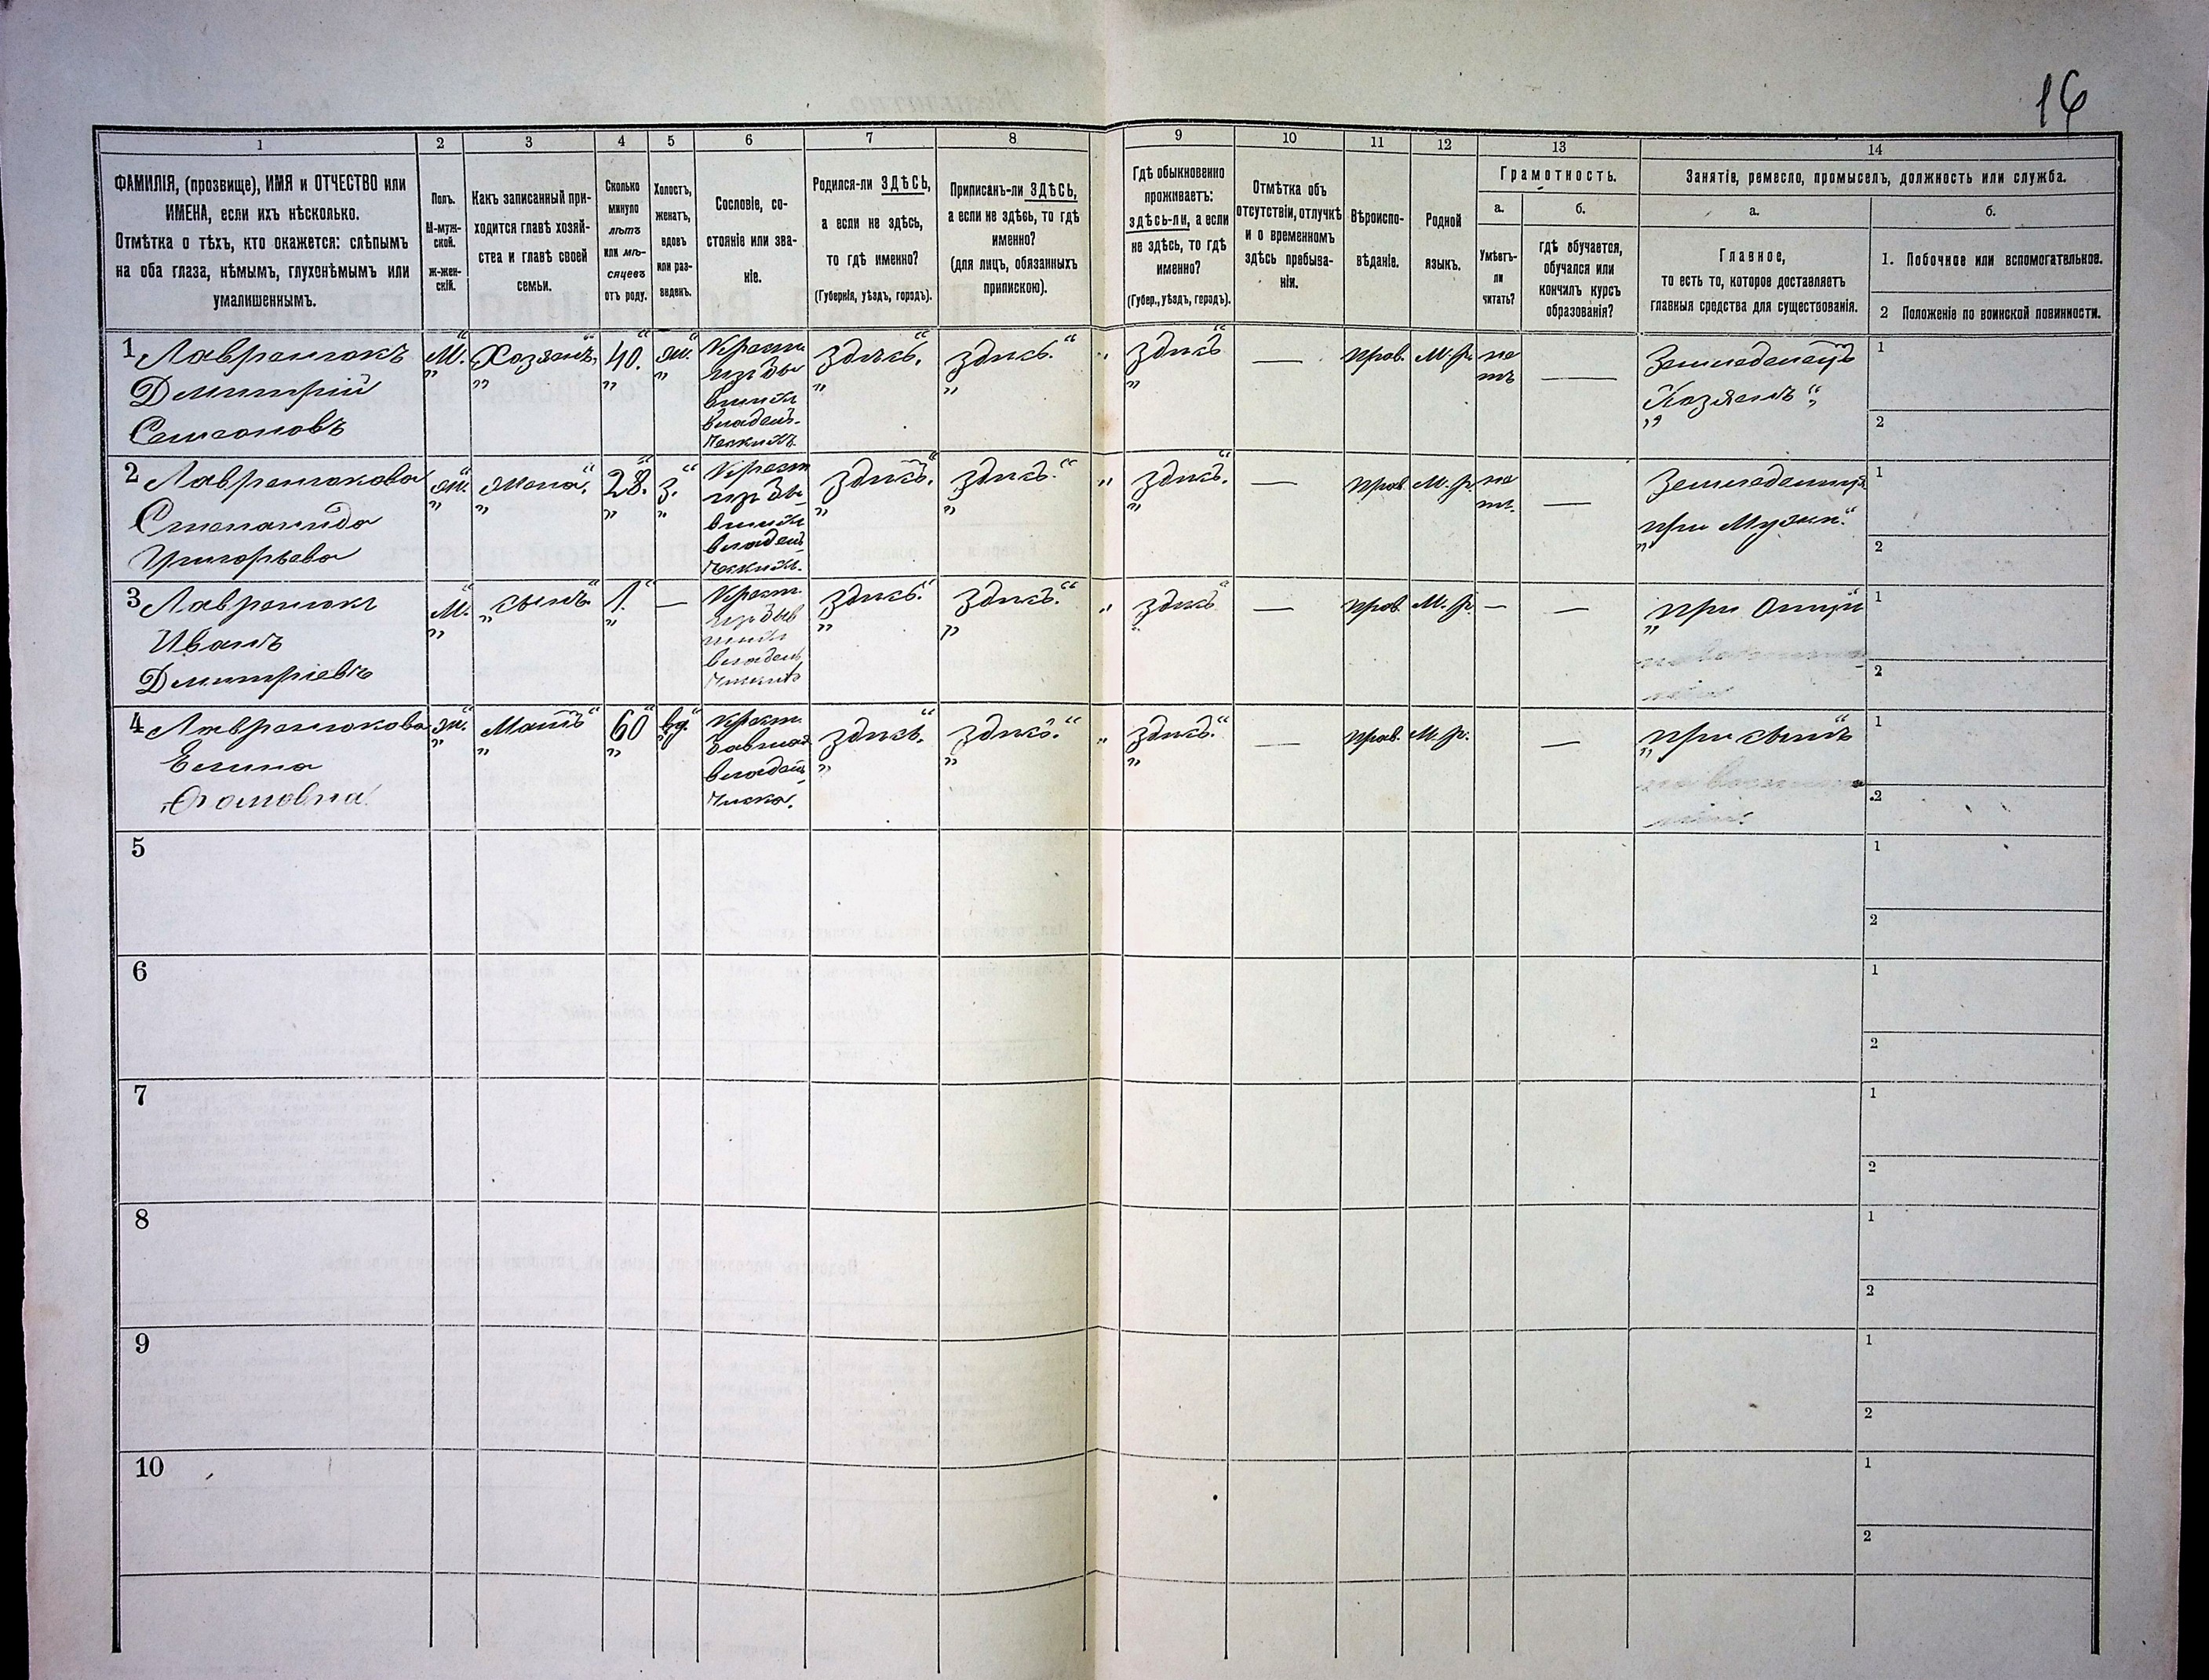 16
1 2 3 4 5 6 7 8 9 10 11 12 13 14
ФАМИЛІЯ, (прозвище), ИМЯ и ОТЧЕСТВО или
ИМЕНА, если ихъ нѣсколько.
Отмѣтка о тѣхъ, кто окажется: слѣпымъ
на оба глаза, нѣмымъ, глухонѣмымъ или
умалишеннымъ.
Полъ.
М-муж-
ской.
ж-жен-
скій.
Какъ записанный при-
ходится главѣ хозяй-
ства и главѣ своей
семьи.
Сколько
минуло
лѣтъ
или мѣ-
сяцевъ
отъ роду.
Холостъ,
женатъ,
вдовъ
или раз-
веденъ.
Сословіе, со-
стояніе или зва-
ніе.
Родился-ли ЗДѢСЬ,
а если не здѣсь,
то гдѣ именно?
(Губернія, уѣздъ, городъ).
Приписанъ-ли ЗДѢСЬ,
а если не здѣсь, то гдѣ
именно?
(для лицъ, обязанныхъ
припискою).
Гдѣ обыкновенно
проживаетъ:
здѣсь-ли, а если
не здѣсь, то гдѣ
именно?
(Губер., уѣздъ, городъ).
Отмѣтка объ
отсутствіи, отлучкѣ
и о временномъ
здѣсь пребыва-
ніи.
Вѣроиспо-
вѣданіе.
Родной
языкъ.
Грамотность.
а.
Умѣетъ-
ли
читать?
б.
гдѣ обучается,
обучался или
кончилъ курсъ
образованія?
Занятіе, ремесло, промыселъ, должность или служба.
а.
Главное,
то есть то, которое доставляетъ
главныя средства для существованія.
б.
1. Побочное или вспомогательное.
2 Положеніе по воинской повинности.
1 Лавренюкъ
Димитрій
Самсоновъ
М.
Хозяинъ,
40.
ж.
Крест.
изъ бы
вшихъ
владель-
ческихъ
здѣсь.
здѣсь.
здѣсь
—
прав.
М. р.
не
тъ
—
Земледелецъ
Хозяинъ
1
2
2 Лавренюкова
Степанида
Григорьева
ж.
жена,
28.
з.
Крест
изъ бы-
вшихъ
владель-
ческихъ.
здѣсь.
здѣсь.
здѣсь.
—
прав.
М. р.
не
тъ.
—
при Мужи.
1
2
3 Лавренюкъ
Иванъ
Димитріевъ
М.
сынъ
1.
—
Крест.
изъ быв
шихъ
владель
здѣсь.
здѣсь.
здѣсь
—
прав.
М. р.
—
—
при Отци
1
2
4 Лавренюкова
Елена
Ѳомовна
ж.
Мать
60
вд.
Крест.
бывшая
владель-
ческа.
здѣсь.
здѣсь.
здѣсь.
—
прав.
М. р.
—
при сынѣ
1
2
5
1
2
6
1
2
7
1
2
8
1
2
9
1
2
10
1
2